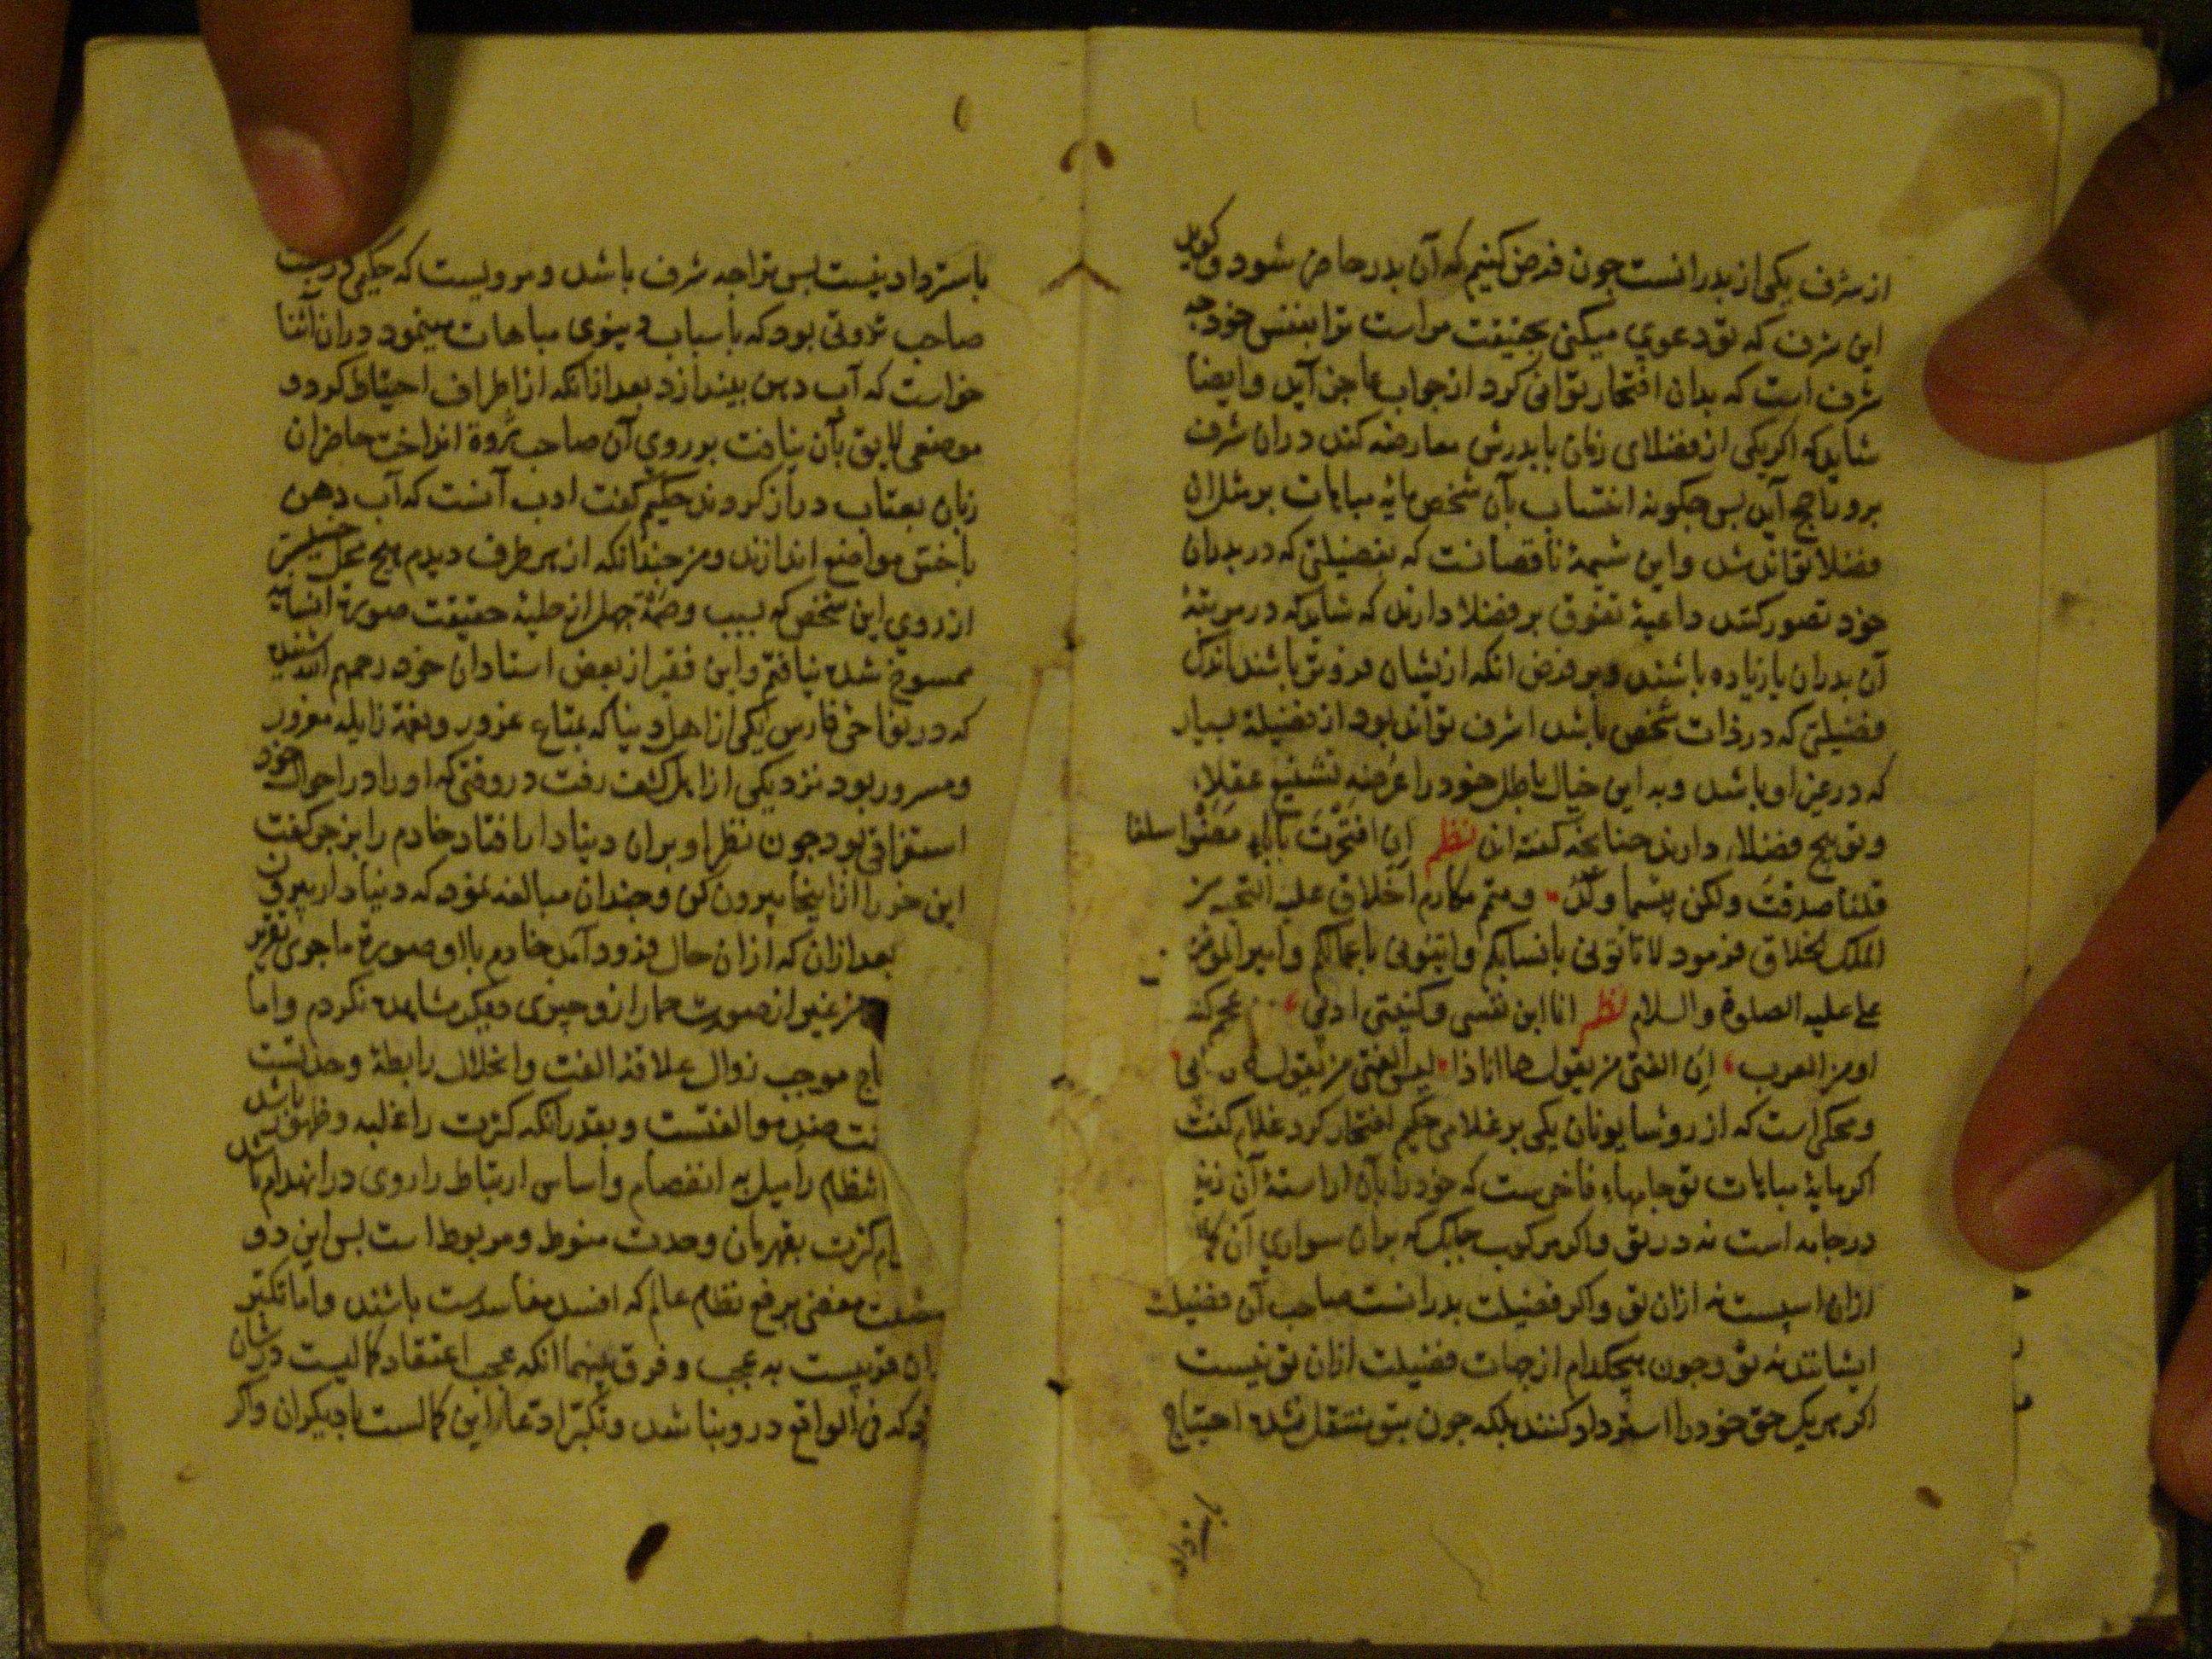 از شرف یکی از بدر انست چون فرض کنیم که آن بدر حاضر شود و کوید
این شرف که تو دعوی میکنی بحقیقت مراست ترا بنفس خود چه
شرف است که بدان افتخار توانی کرد از جواب عاجز آید و ایضا
شاید که اکر یکی از فضلای زمان با بدرش معارضه کند در ان شرف
برو راجح آید بس چکونه انتساب بآن شخص مایهٔ مباهات بر مثل ان
فضلا تواند شد و این شیمهٔ ناقصانست که بفضیلتی که در بدران
خود تصور کنند داعیهٔ تفوق بر فضلا دارند که شاید که در مرتبهٔ
آن بدران یا زیاده باشند و بر فرض انکه ازیشان فروتر باشند اندک
فضیلتی که در ذات شخص باشد اشرف تواند بود از فضیلة بسیار
که در غیر او باشد و به این خیال باطل خود را عرضهٔ تشنیع عقلاء
و توبیخ فضلاء دارند چنانچه کفته اند نظم إن افتخرت بآباءٍ مضوا سلفا
قلنا صدقت ولكن بئسما ولد و متمم مکارم اخلاق علیه التحیه من
الملک الخلاق فرمود لا تأتونی بانسابکم وایتونی باعمالکم و امیر المؤمنین
علی علیه الصلوة والسلام نظم انا ابن نفسی وکنیتی ادبی من عجم کنت
او من العرب إن الفتی من یقول ها انا ذا لیس الفتی من یقول کان ابی
و محکی است که از رؤسا یونان یکی بر غلامی حکیم افتخار کرد غلام کفت
اکر مایهٔ مباهات تو جامهاء فاخریست که خود را بآن اراستهٔ آن زینت
در جامه است نه در تو و اکر مرکوب چابک که بران سواری آن
ازان اسبست نه ازان تو و اکر فضیلت بدرانست صاحب آن فضیلت
ایشانند نه تو و چون هیچکدام از جهات فضیلت ازان تو نیست
اکر هر یک حق خود را استرداد کنند بلکه چون بتو منتقل نشده احتیاج
باسترداد
باسترداد نیست بس ترا چه شرف باشد و مرویست که حکیمی
صاحب ثروتی بود که باسباب دنیوی مباهات مینمود دران اثنا
خواست که آب دهن بیندازد بعد ازانکه از اطراف احتیاط کرد و
موضعی لایق بآن نیافت بر روی آن صاحب ثروة انداخت حاضران
زبان بعتاب دراز کردند حکیم کفت ادب آنست که آب دهن
باخس مواضع اندازند و من چندانکه از هر طرف دیدم هیچ محل خسیستر
از روی این شخص که بسبب وصمة جهل از حلیهٔ حقیقت صورة انسانیه
ممسوخ شده نیافتم و این فقیر از بعض استادان خود رحمهم الله شنیده
که در نواحی فارس یکی از اهل دنیا که بمتاع غرور و نعمة زایله مغرور
و مسرور بود نزد یکی از اهل کشف رفت در وقتی که او را در احوال خود
استغراقی بود چون نظر او بران دنیادار افتاد خادم را بزجر کفت
این خر را از اینجا بیرون کن و چندان مبالغه نمود که دنیادار بیرون
بعد ازان که ازان حال فرود آمد خادم با او صورة ماجری تقریر
من غیر از صورت حمار ازو چیزی دیکر مشاهده نکردم و اما
موجب زوال علاقهٔ الفت و انحلال رابطهٔ وحدتست
ضد موالفتست و بقدر انکه کثرت را غلبه و ظهور باشد
انتظام را میل به انفصام و اساس ارتباط را روی در انهدام باشد
کثرت بقهرمان وحدت منوط و مربوط است بس این دو
مفضی برفع نظام عالم که افسد مفاسدست باشند و اما تکبر
ان قریبست به عجب و فرق بینهما انکه عجب اعتقاد کمالیست در شان
که فی الواقع درو نباشد و تکبر ادعاء این کمالست با دیکران و اکر